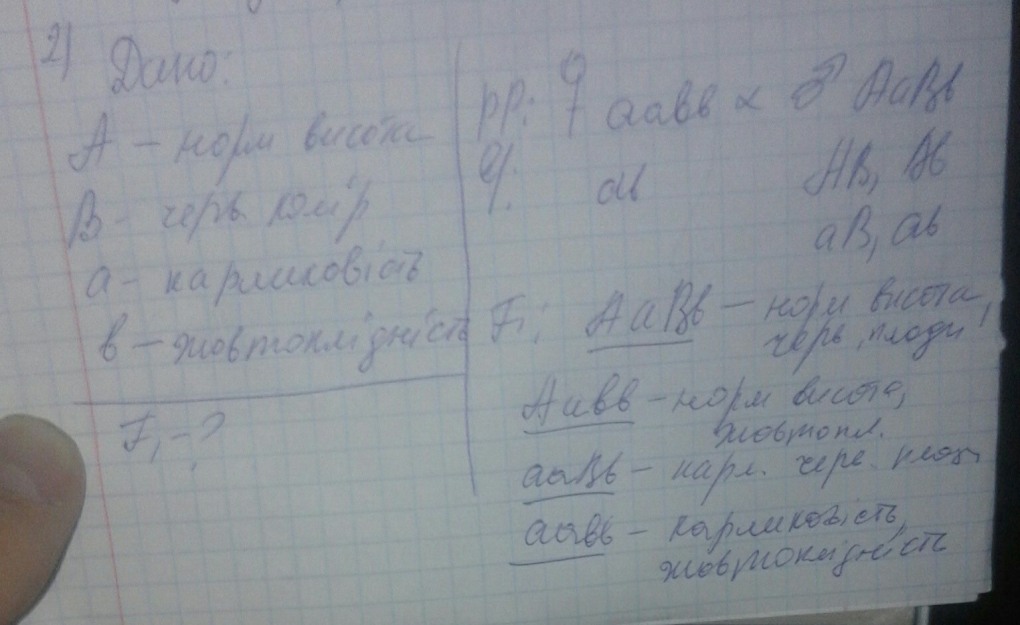 2) Дано:
А – норм висота
В – черв. колір
а – карликовість
в – жовтоплідність
F₁ – ?
РР: ♀ аавв × ♂ АаВв
G: ав АВ, Ав
аВ, ав
F₁: АаВв – норм висота,
черв. плоди
Аавв – норм висота,
жовтопл.
ааВв – карл. черв. плоди
аавв – карликовість,
жовтоплідність